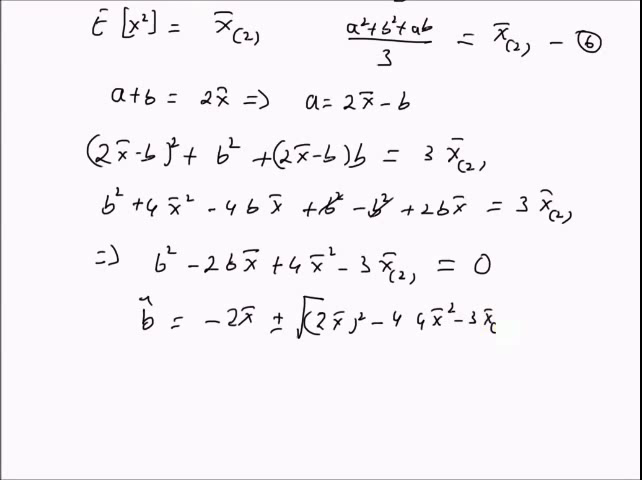 E [x²] = x̄₍₂₎ (a²+b²+ab)/3 = x̄₍₂₎ - ⑥
a+b = 2x̄ => a = 2x̄ - b
(2x̄-b)² + b² + (2x̄-b)b = 3 x̄₍₂₎
b² + 4x̄² - 4bx̄ + b² - b² + 2bx̄ = 3 x̄₍₂₎
=> b² - 2bx̄ + 4x̄² - 3x̄₍₂₎ = 0
b̂ = -2x̄ ± √(2x̄)² - 4 4x̄² - 3x̄₍